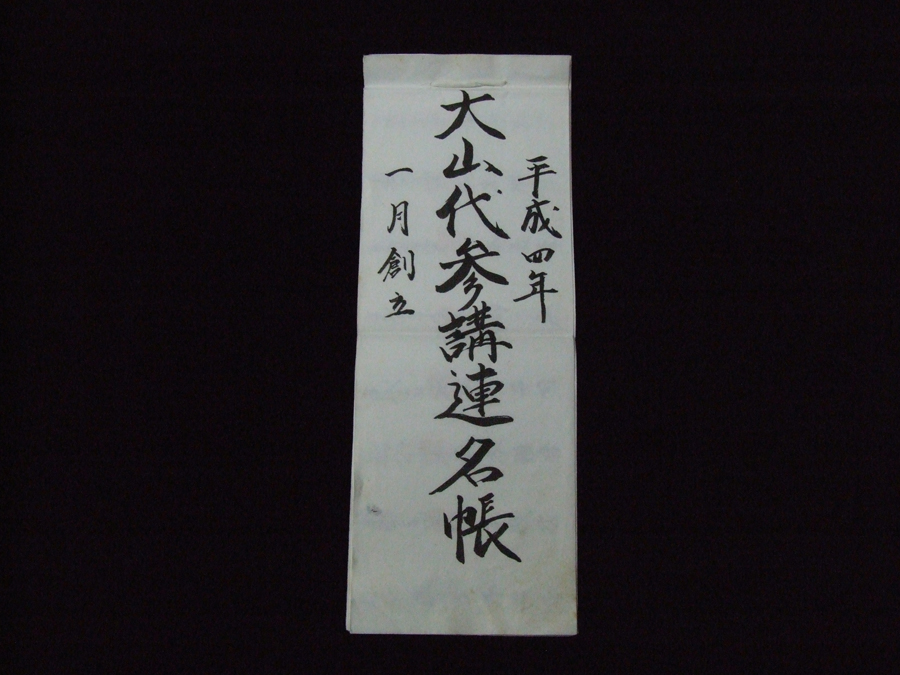 平成四年
大山代参講連名帳
一月創立